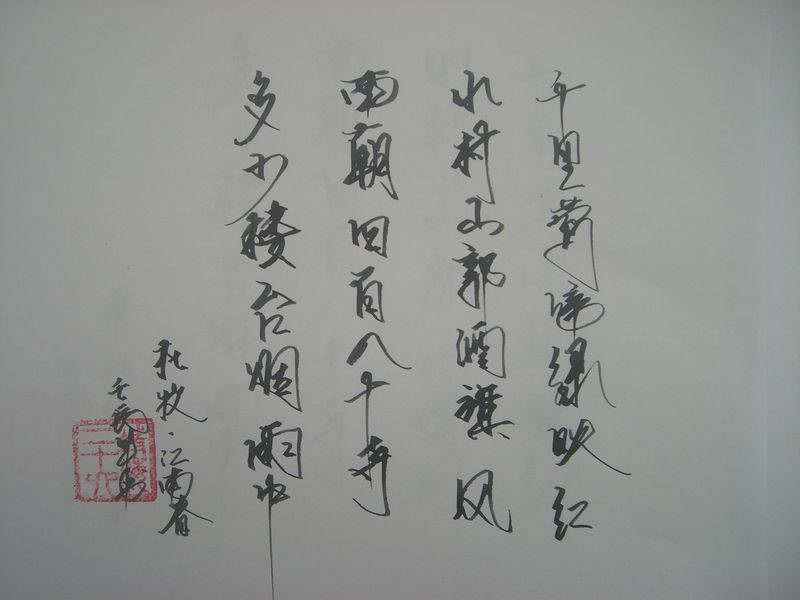 千里莺啼绿映红
水村山郭酒旗风
南朝四百八十寺
多少楼台烟雨中
杜牧·江南春